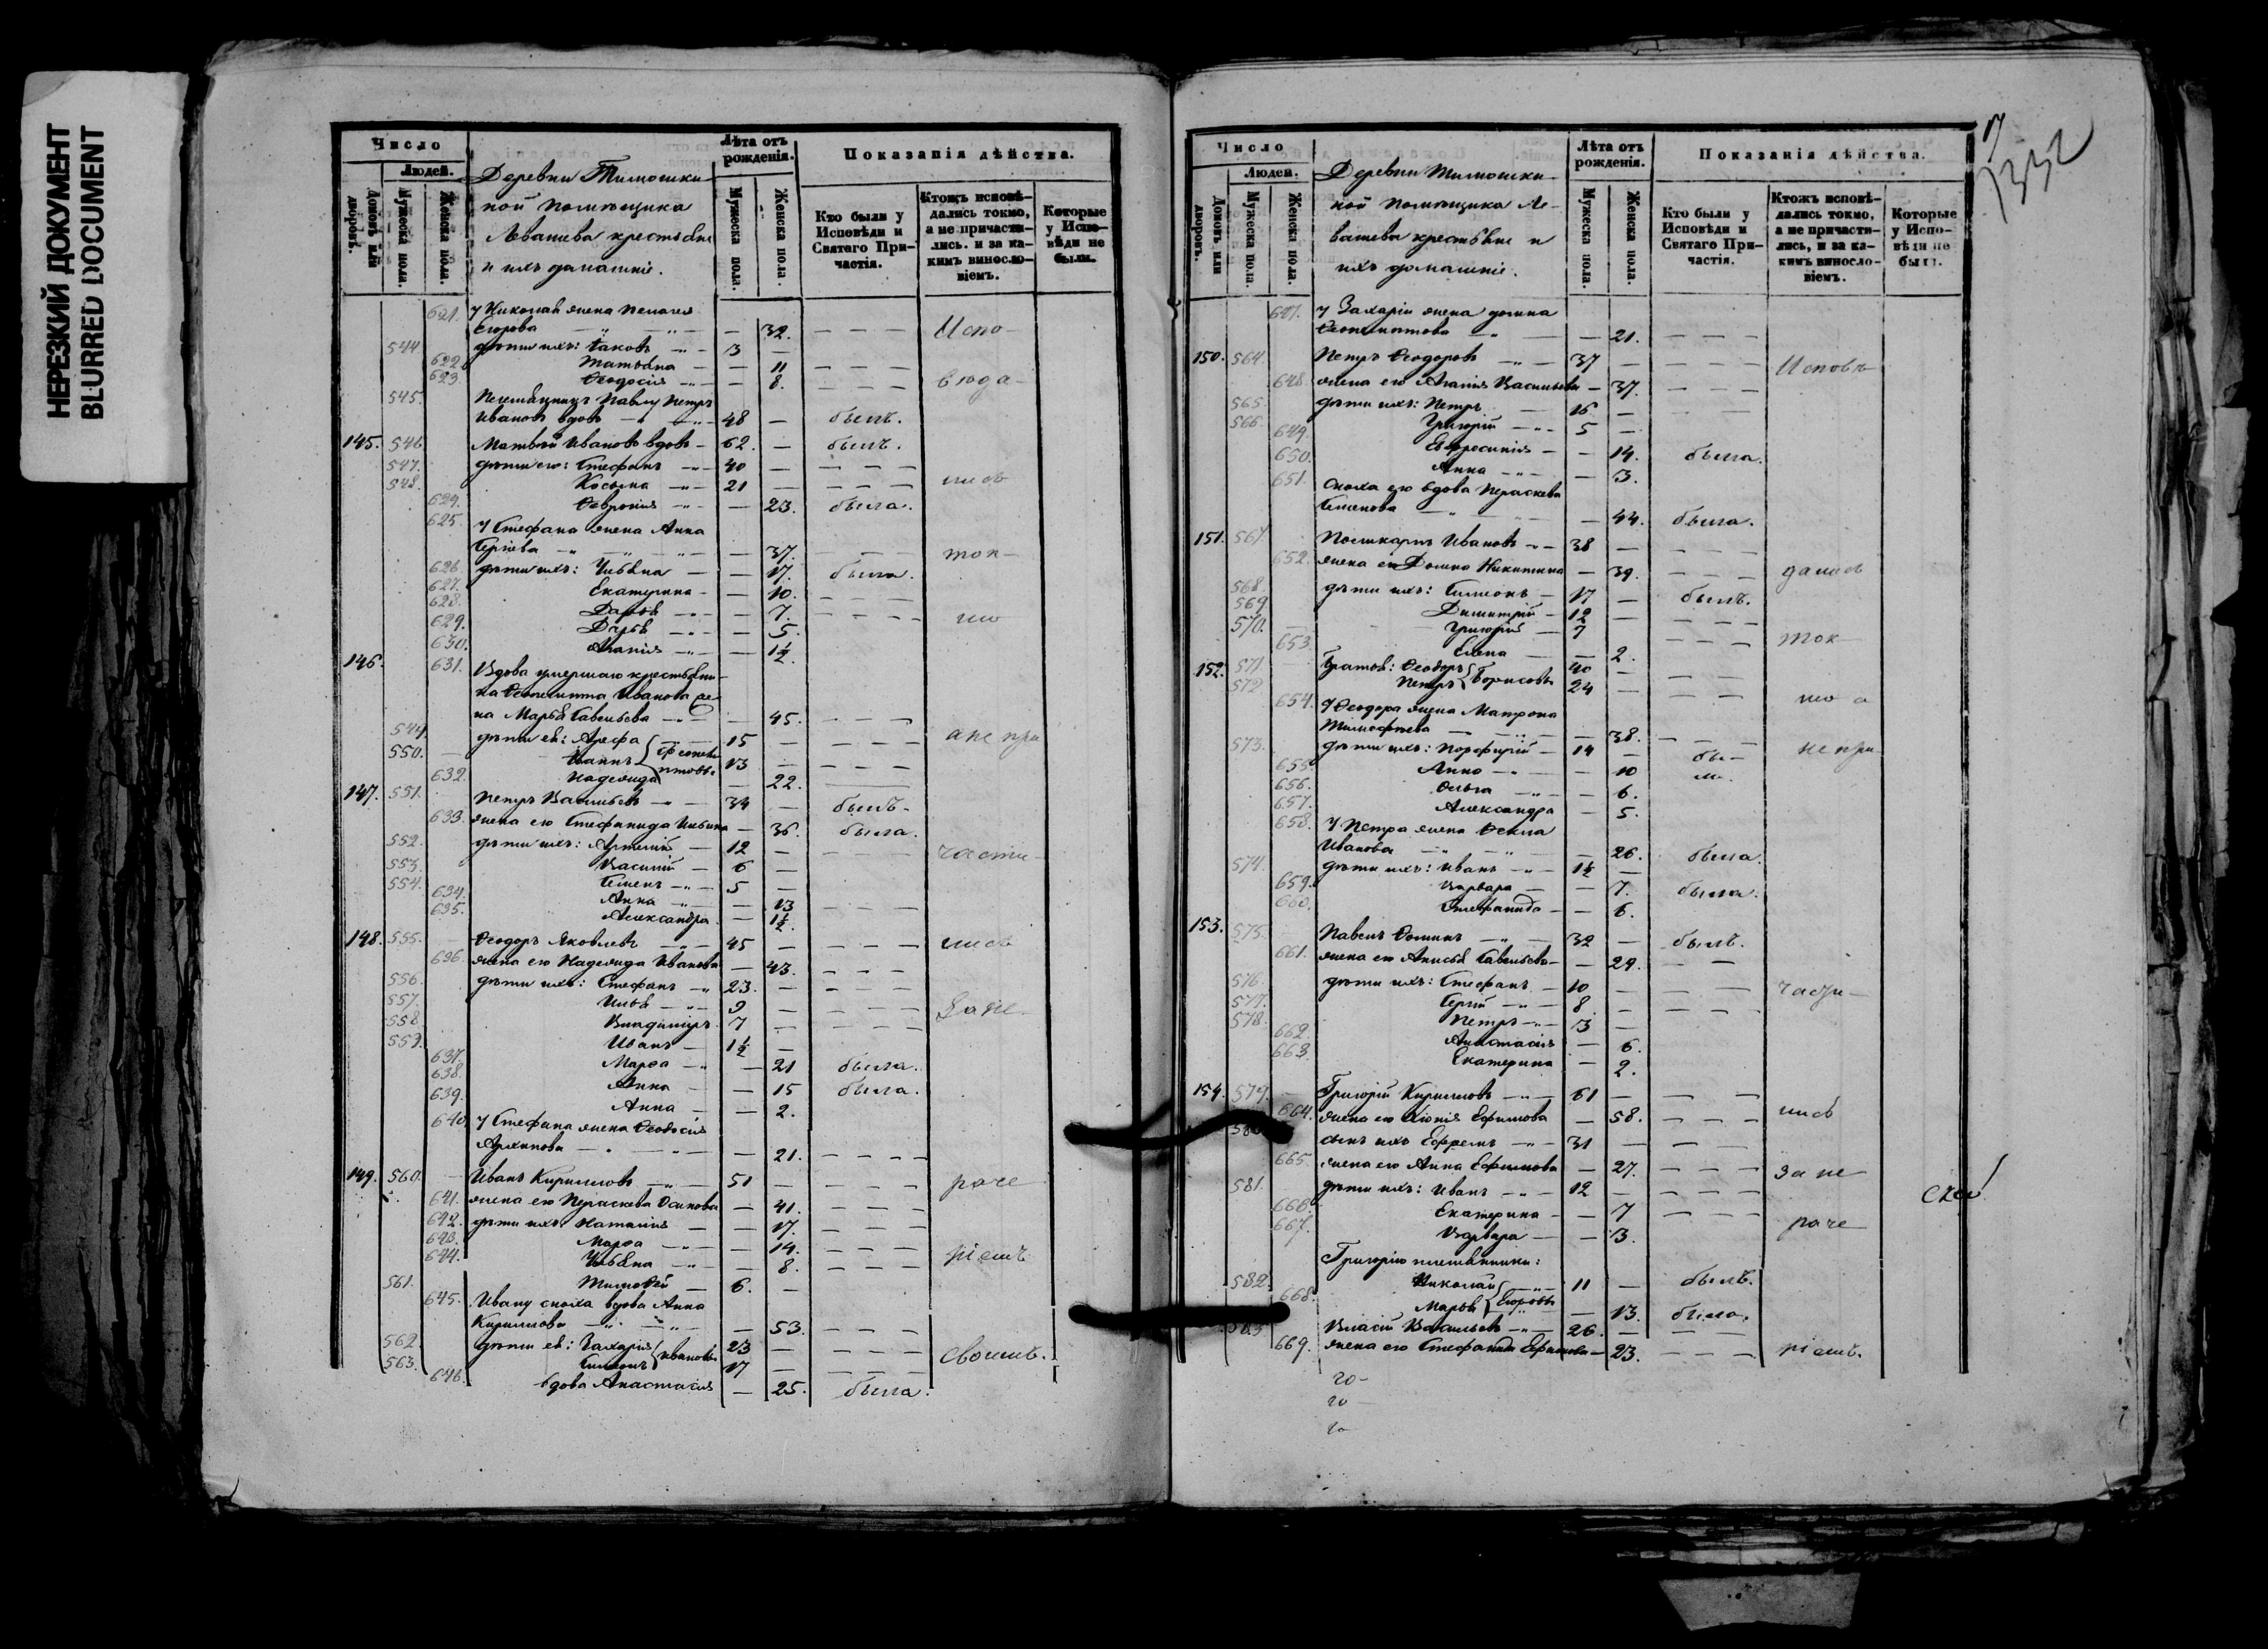 НЕРЕЗКИЙ ДОКУМЕНТ
BLURRED DOCUMENT
Число
Людей.
Домовъ или дворовъ.
Мужеска пола.
Женска пола.
Деревни Тимошки-
ной помѣщика
Левашева крестьяне
и ихъ домашніе.
Лѣта отъ рожденія.
Мужеска пола.
Женска пола.
Показанія дѣйства.
Кто были у Исповѣди и Святаго При-частія.
Ктожъ исповѣ-дались токмо, а не причасти-лись, и за ка-кимъ винословіемъ.
Которые у Испо-вѣди не были.
621. У Николая жена Пелагея
Егорова — 32. Испо-
544. дѣти ихъ: Іаковъ 3 —
622. Татьяна — 11
623. Ѳеодосія — 8.
545. Племянникъ Павлу Петръ
Ивановъ вдовъ 48 — былъ.
145. 546. Матвѣй Ивановъ вдовъ 62. — былъ.
547. дѣти его: Стефанъ 40 —
548. Косьма 21 — лись
624. Ѳевронія — 23. была.
625. У Стефана жена Анна
Сергіева — 37. ток-
626. дѣти ихъ: Ульяна — 17. была.
627. Екатерина — 10.
628. Дарья — 7. мо
629. Дарья — 5.
630. Агапія — 1½.
146. 631. Вдова умершаго крестьяни-
на Ѳеоктиста Иванова же-
на Марья Савельева — 45.
549. дѣти ея: Арефа 15 — а не при
550. Іоаннъ 13 —
632. Надежда — 22.
147. 551. Петръ Васильевъ 34 — былъ.
633. жена его Стефанида Ильина — 36. была.
552. дѣти ихъ: Артемій 12 — части-
553. Василій 6 —
554. Семенъ 5 —
634. Анна — 13
635. Александра — 1½.
148. 555. Ѳеодоръ Яковлевъ 45 — лись
636. жена его Надежда Иванова — 43.
556. дѣти ихъ: Стефанъ 23. —
557. Илья 9 — за не
558. Владиміръ 7 —
559. Иванъ 1½ —
637. Марѳа — 21 была.
638. Анна — 15 была.
639. Анна — 2.
640. У Стефана жена Ѳеодосія
Архипова — 21.
149. 560. Иванъ Кирилловъ 51 — раче
641. жена его Параскева Осипова — 41.
642. дѣти ихъ: Наталія — 17.
643. Марѳа — 14.
644. Ульяна — 8. ніемъ
561. Тимоѳей 6. —
645. Ивану сноха вдова Анна
Кириллова — 53.
562. дѣти ея: Захарія Ивановы 23 —
563. Симеонъ 17 — своимъ.
646. вдова Анастасія — 25. была.
17
1332
Число
Людей.
Домовъ или дворовъ.
Мужеска пола.
Женска пола.
Деревни Тимошки-
ной помѣщика Ле-
вашева крестьяне и
ихъ домашніе.
Лѣта отъ рожденія.
Мужеска пола.
Женска пола.
Показанія дѣйства.
Кто были у Исповѣди и Святаго При-частія.
Ктожъ исповѣ-дались токмо, а не причасти-лись, и за ка-кимъ винословіемъ.
Которые у Испо-вѣди не были.
647. У Захарія жена Домна
Ѳеоктистова — 21.
150. 564. Петръ Ѳеодоровъ 37 — Исповѣ-
648. жена его Агапія Васильева — 37.
565. дѣти ихъ: Петръ 16 —
566. Григорій 5 —
649. Евфросинія — 14. была.
650. Анна — 3.
651. Сноха его вдова Параскева
Семенова — 44. была.
151. 567. Поликарпъ Ивановъ 38 —
652. жена его Домна Никитина — 39. дались
568. дѣти ихъ: Симеонъ 17 — былъ.
569. Димитрій 12 —
570. Григорій 7 ток-
653. Елена — 2.
152. 571. Братья: Ѳеодоръ Борисовы 40 —
572 Петръ 24 — мо а
654. У Ѳеодора жена Матрона
Тимофѣева — 38.
573. дѣти ихъ: Порфирій 14 — бы- не при-
655. Анна — 10 ли.
656. Ольга — 6.
657. Александра — 5.
658. У Петра жена Ѳекла
Иванова — 26. была.
574. дѣти ихъ: Иванъ 1½ —
659. Варвара — 7. была.
660. Стефанида — 6.
153. 575. Павелъ Ѳоминъ 32 — былъ.
661. жена его Анисья Савельева — 29.
576. дѣти ихъ: Стефанъ 10 — части-
577. Сергій 8 —
578. Петръ 3 —
662 Анастасія — 6.
663. Екатерина — 2.
154. 579. Григорій Кирилловъ 61 —
664. жена его Хіонія Ефимова — 58. лись
580 сынъ ихъ Ефремъ 31 —
665. жена его Анна Ефимова — 27. за не
581. дѣти ихъ: Иванъ 12 —
666. Екатерина — 7
667. Варвара — 3. раче
Григорію племянники:
582. Николай Егоровы 11 — былъ.
668. Марья — 13. была.
583 Власій Васильевъ 26. —
669. жена его Стефанида Ефимова — 23. ніемъ.
го-
го-
го-